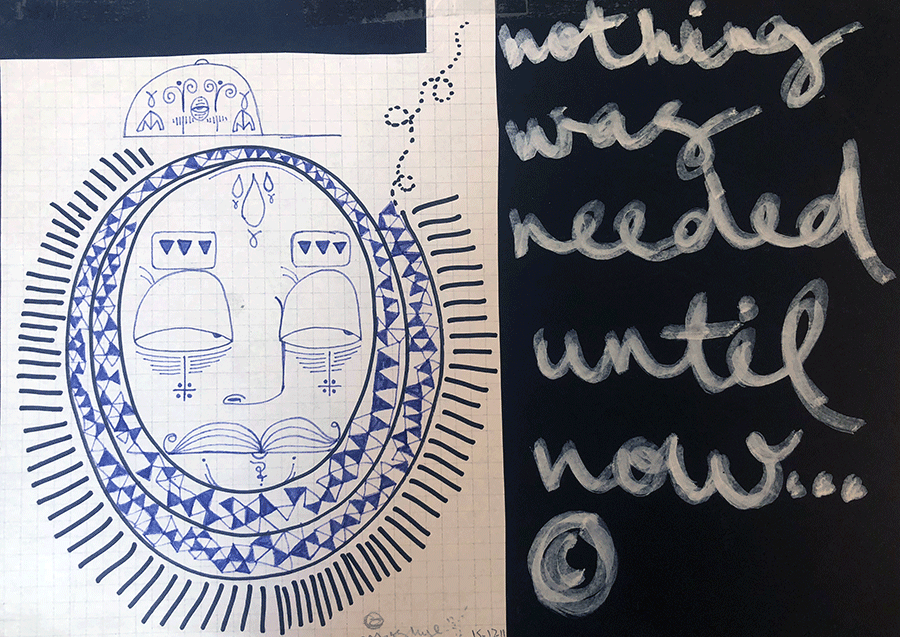 nothing
was
needed
until
now...